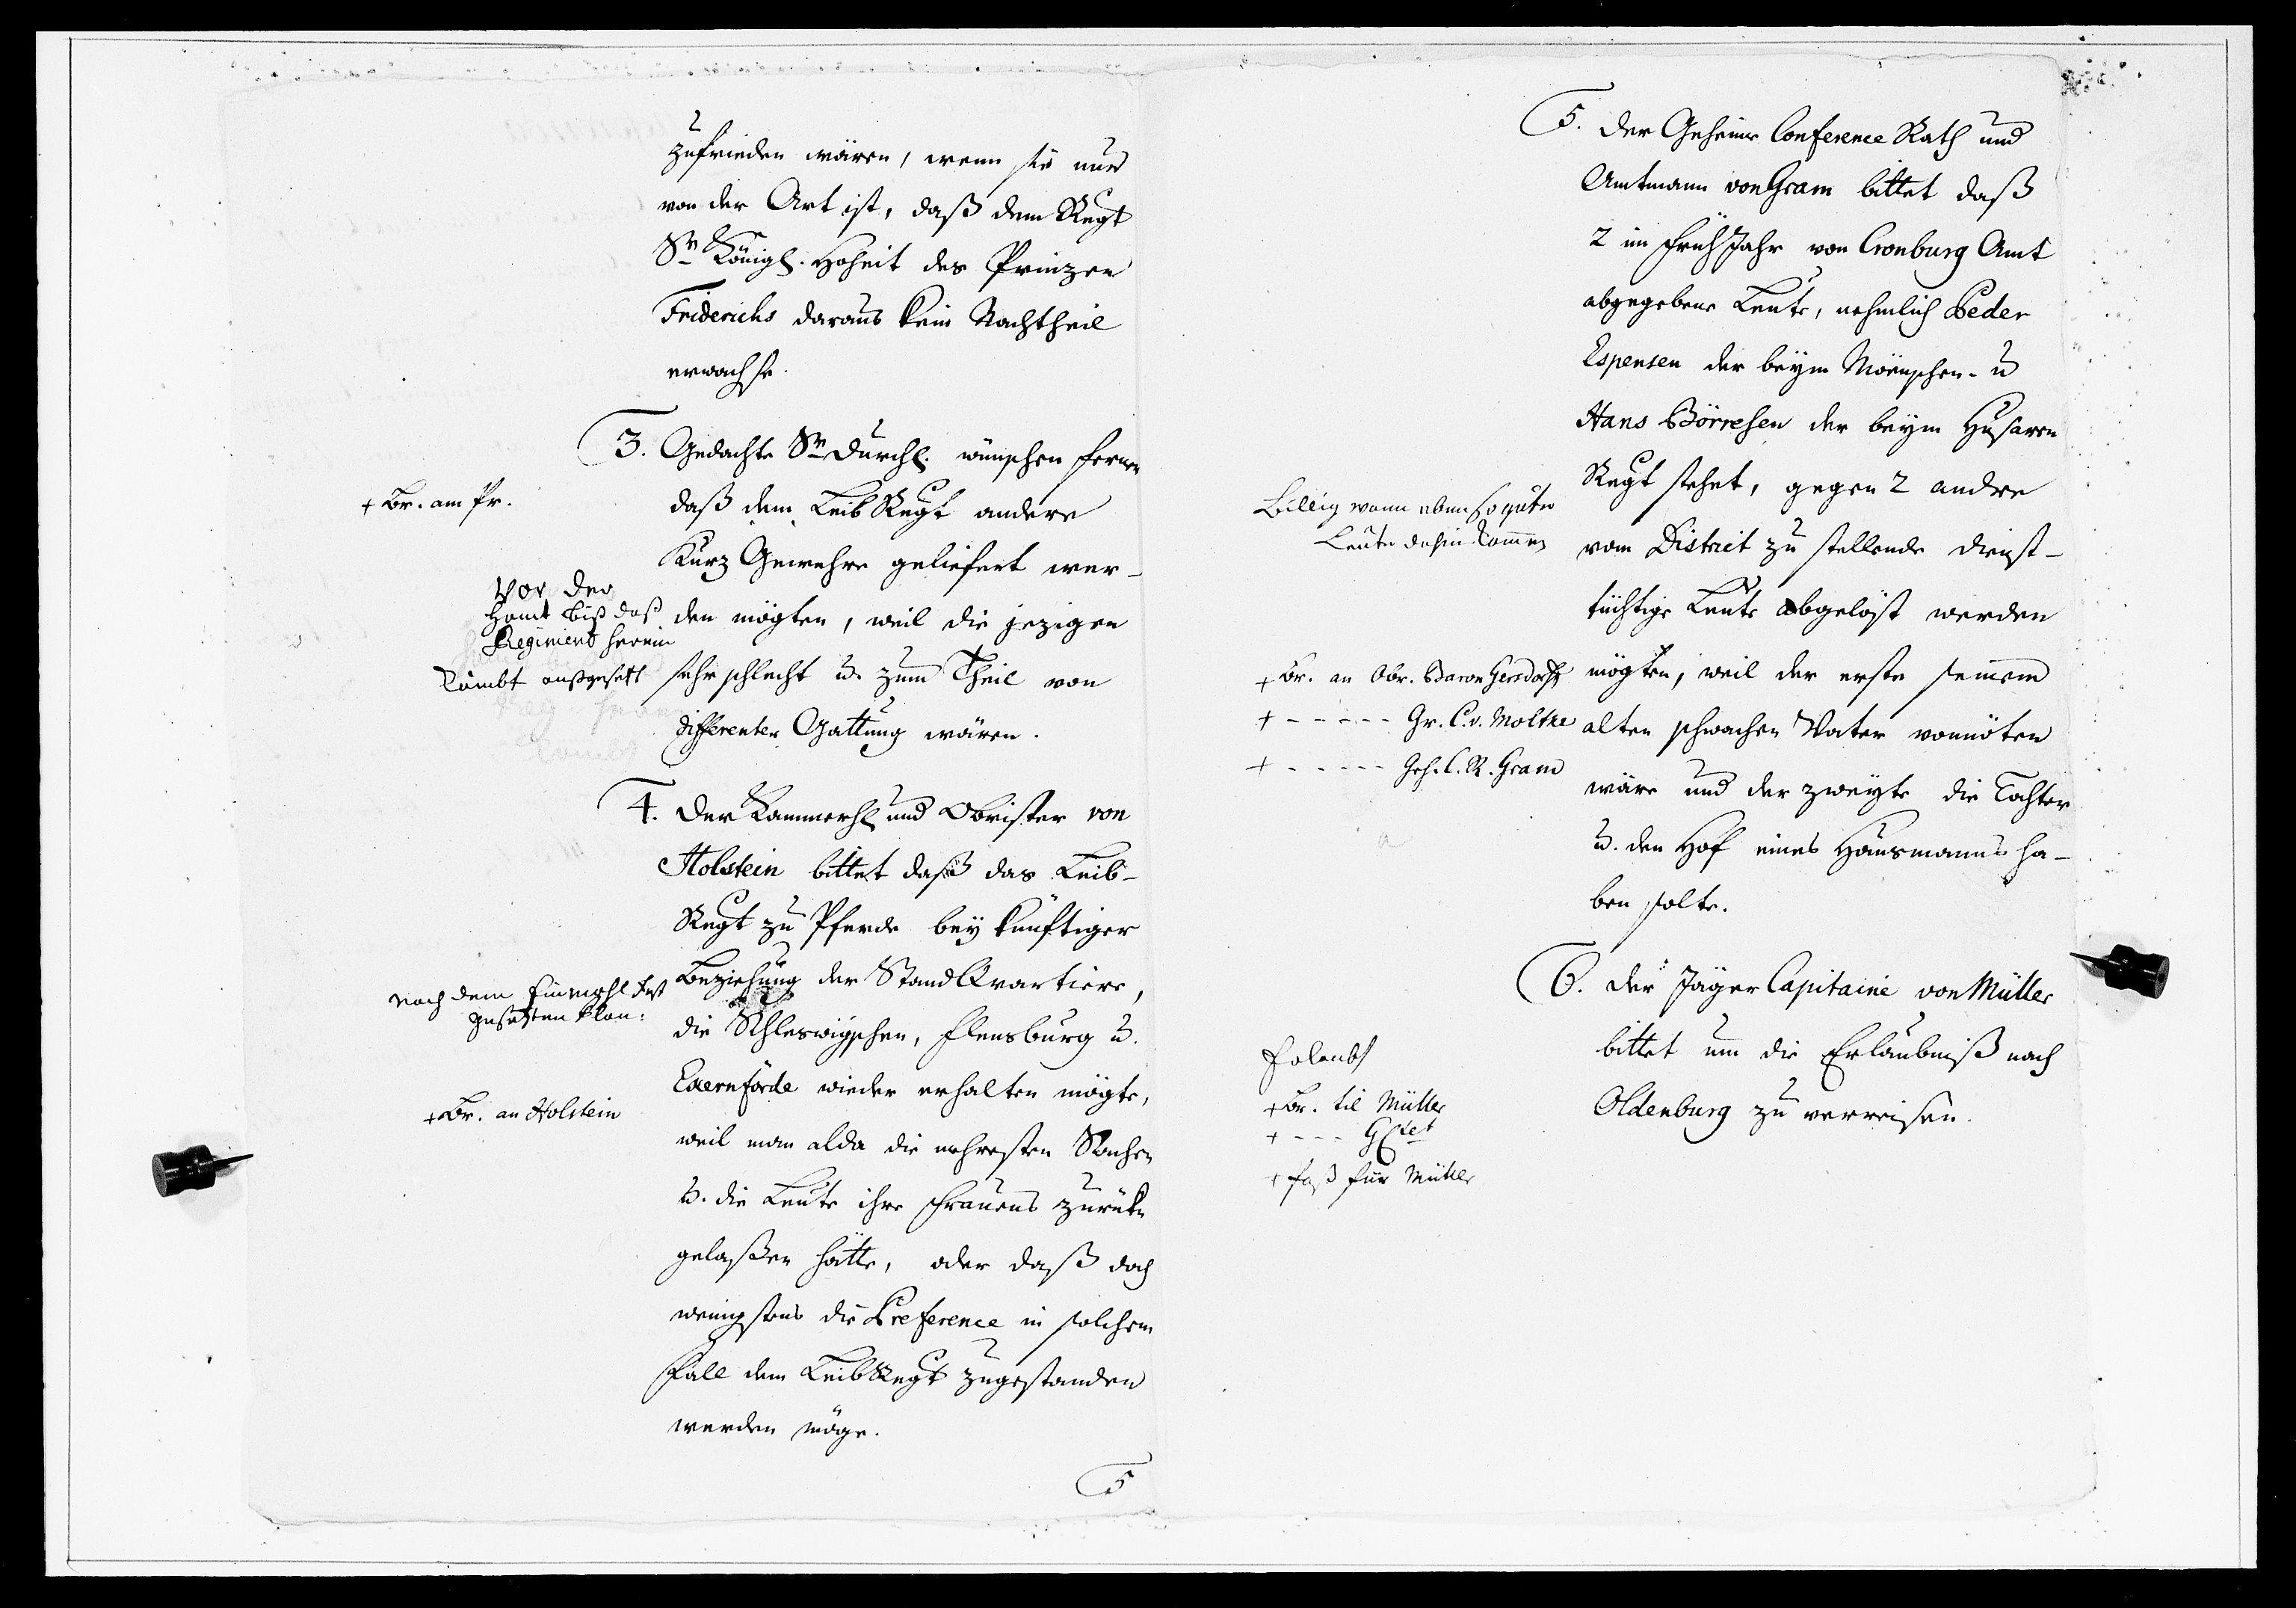 zufrieden wären, wenn sie nur
von der Art ist, daß dem Regt
Sr Königl. Hoheit des Prinzen
Friderichs daraus kein Nachtheil
erwachse.
3. Gedachte Sr Durchl. wünschen ferner
+ Br. am Pr.
daß dem Leib Regt andere
Kurz Gewehre geliefert wer-
Vor der
Hant biß daß
Regiment herein
Kömbt außgesett
den mögten, weil die jezigen
sehr schlecht u. zum Theil von
differenten Gattung wären.
4. Der Kammerh und Obrister von
Holstein bittet daß das Leib-
Regt zu Pferde bey künftiger
Beziehung der Stand Qvartiere,
nach dem Einmahl fest
gesetzten plan:
die Schleswigschen, Flensburg u.
Eκernförde wieder erhalten mögte,
+ Br. an Holstein
weil man alda die mehresten Sachen
u. die Leute ihre Frauens zurük
gelaßen hätte, oder daß doch
wenigstens die Preference in solchem
Fall dem Leib Regt zugestanden
werden möge.
5
5. Der Geheime Conference Rath und
Amtmann von Gram bittet daß
2 im FrühJahr von Cronburg Amt
abgegebene Leute, nehmlich Peder
Espensen der beym Möenschen- u
Hans Börresen der beym Husaren
Regt stehet, gegen 2 andre
Billig wann eben so gute
Leute dahin kommen
vom District zu stellende dienst-
tüchtige Leute abgelöst werden
+ Br. an Obr. Baron Gersdorff
mögten, weil der erste seinem
+ - - - - - Gr. C. v. Moltke
alten schwachen Vater vonnöten
+ - - - - - Geh. C. R. Gram
wäre und der zweyte die Tochter
u. den Hof eines Hausmanns ha-
ben solte.
6. Der Jäger Capitaine von Müller
bittet um die Erlaubniß nach
Oldenburg zu verreisen.
Erlaubt
+ Br. til Müller
+ - - - GCtet
+ Paß für Müller